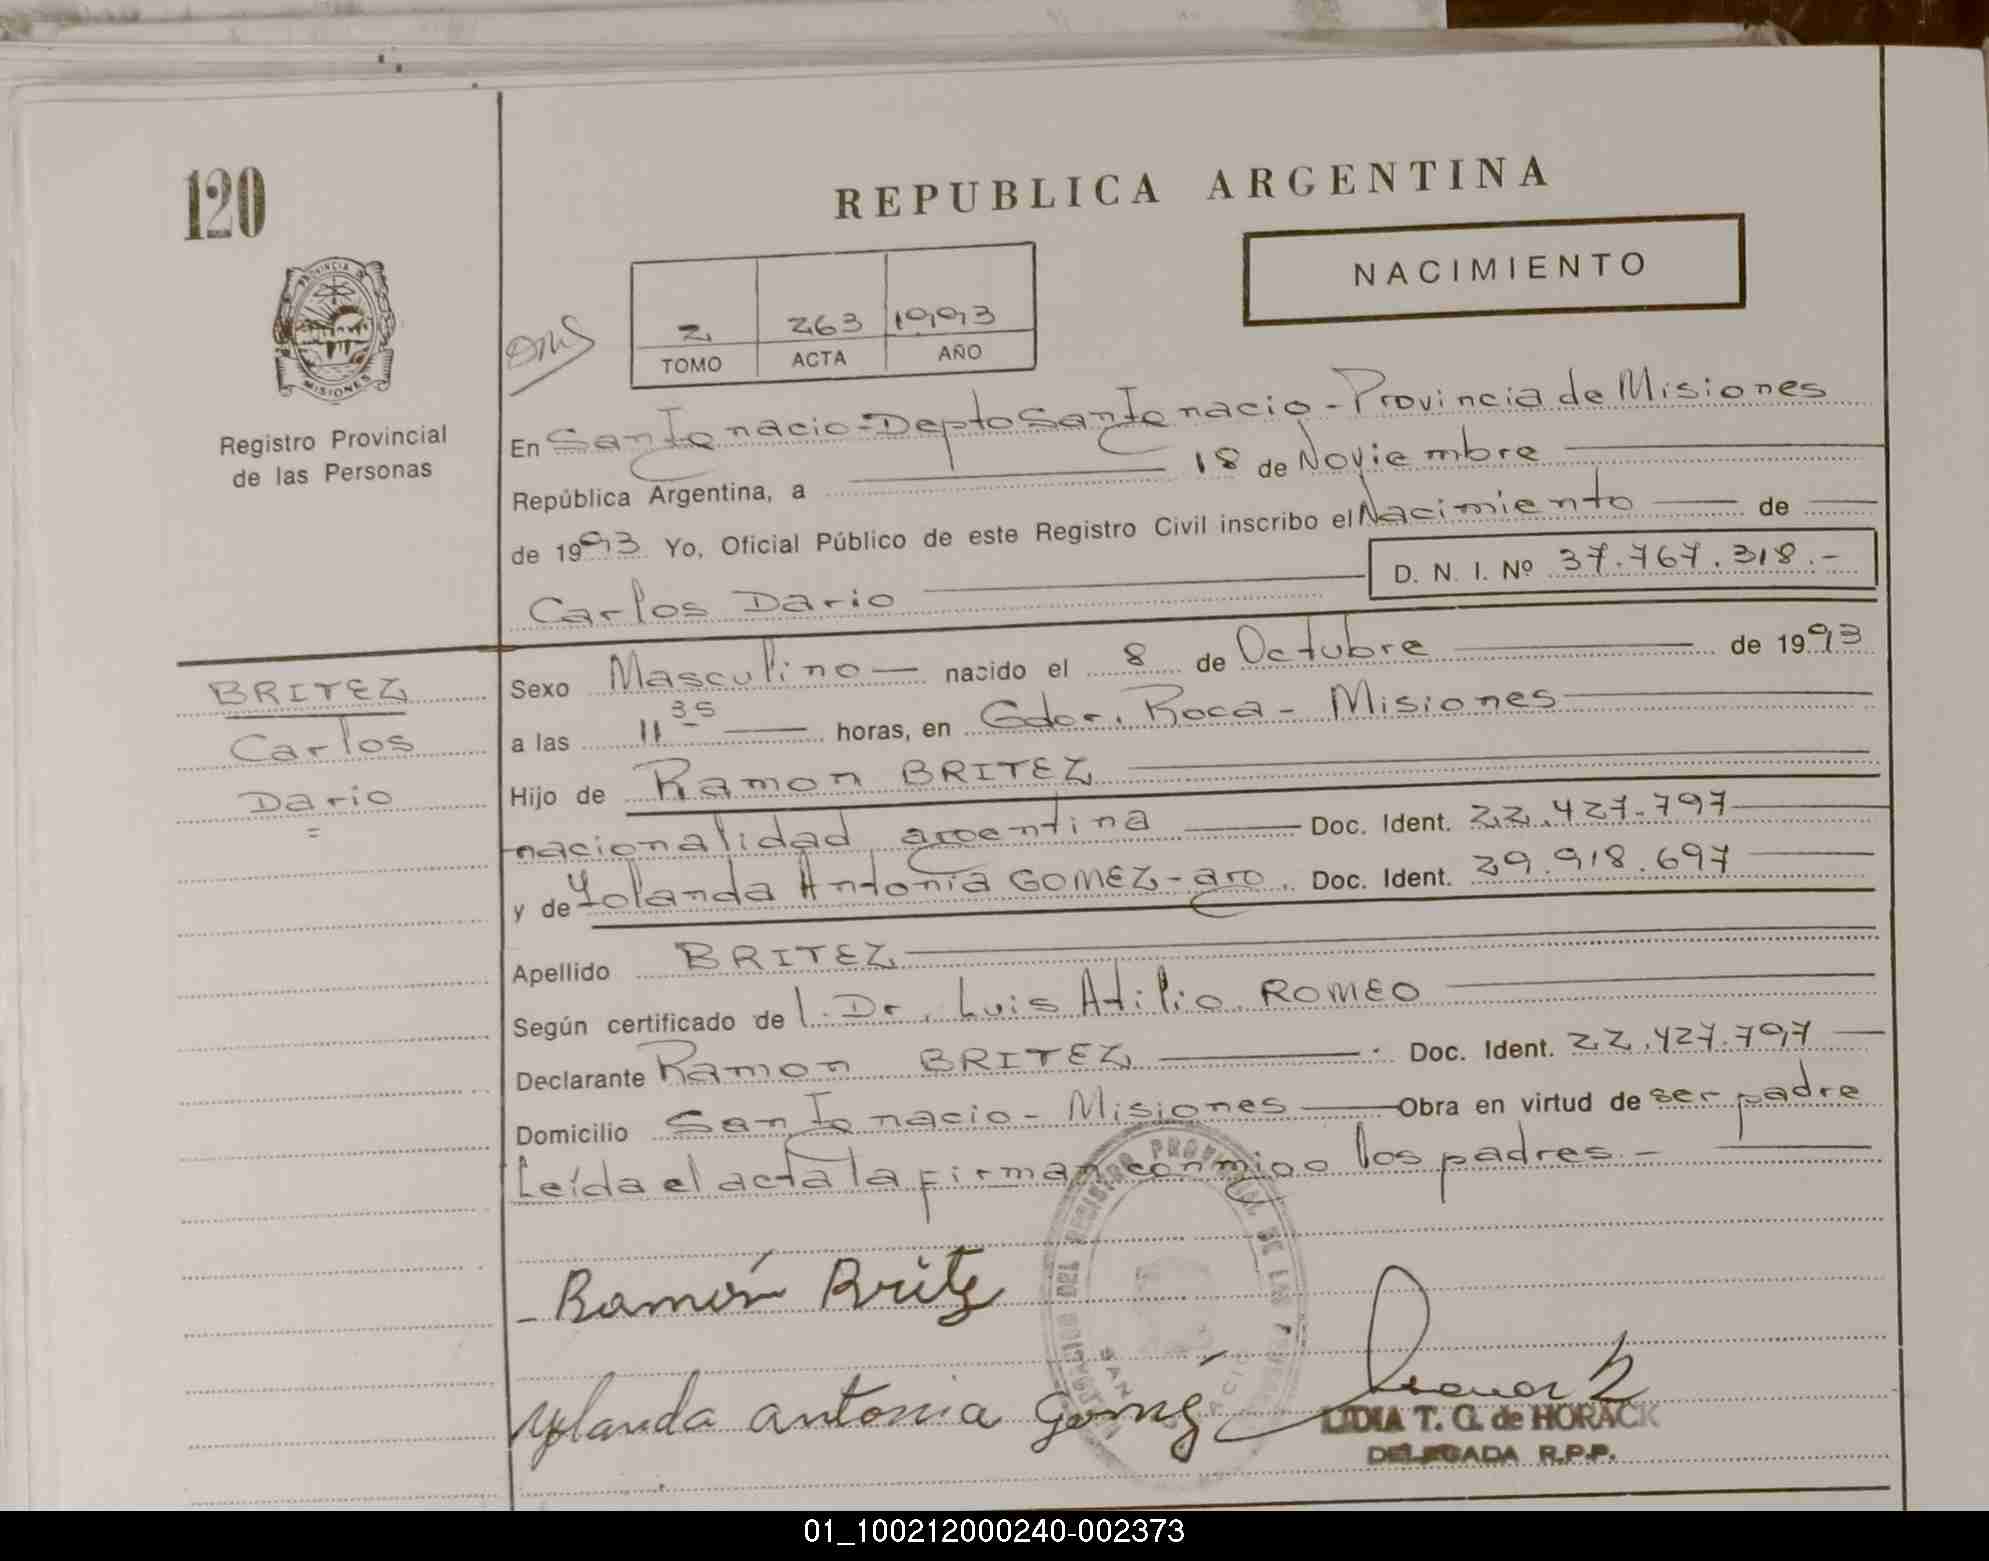 120
REPUBLICA ARGENTINA
NACIMIENTO
PROVINCIA DE
MISIONES
Registro Provincial
de las Personas
2 263 1993
TOMO ACTA AÑO
En San Ignacio - Depto San Ignacio - Provincia de Misiones
República Argentina, a 18 de Noviembre
de 1993 Yo, Oficial Público de este Registro Civil inscribo el Nacimiento de
D. N. I. Nº 37.767.318.-
Carlos Dario
BRITEZ
Carlos
Dario
Sexo Masculino nacido el 8 de Octubre de 1993
a las 11 35 horas, en Gdor. Roca - Misiones
Hijo de Ramon BRITEZ
nacionalidad argentina Doc. Ident. 22.427.797
y de Yolanda Antonia GOMEZ - arg. Doc. Ident. 29.918.697
Apellido BRITEZ
Según certificado de l. Dr. Luis Atilio ROMEO
Declarante Ramon BRITEZ Doc. Ident. 22.427.797
Domicilio San Ignacio - Misiones Obra en virtud de ser padre
Leída el acta la firman conmigo los padres.-
REGISTRO PROVINCIAL DE LAS
Ramón Britez
Yolanda antonia Gomez
LIDIA T. G. de HORACK
DELEGADA R.P.P.
01_100212000240-002373